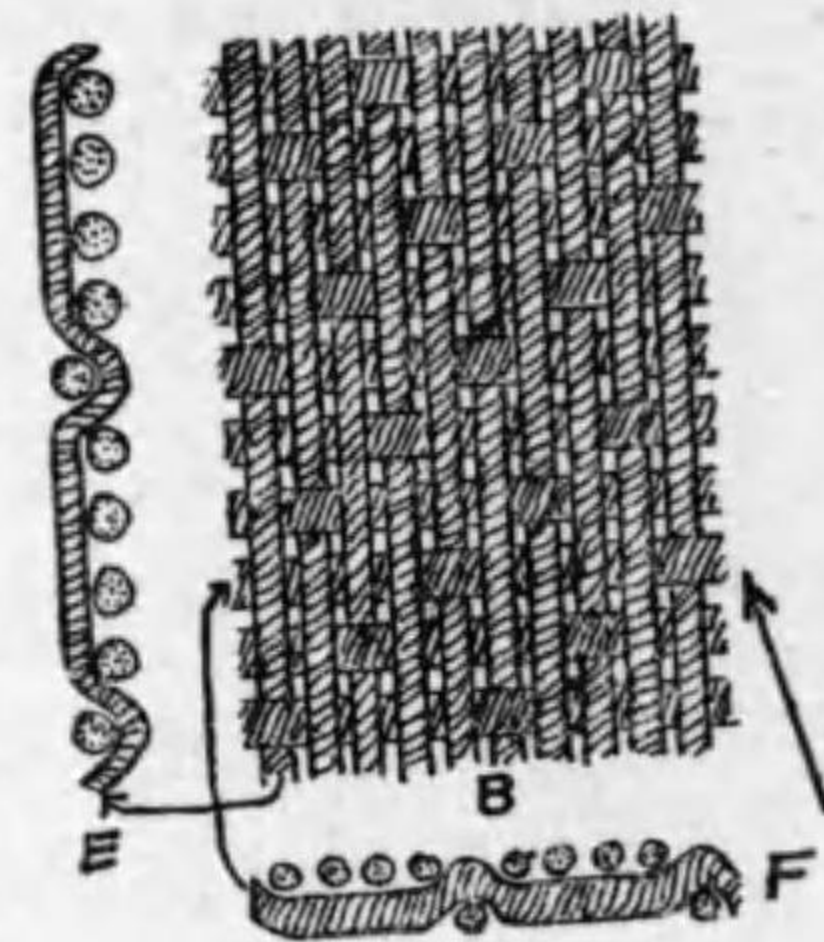 B
E
F